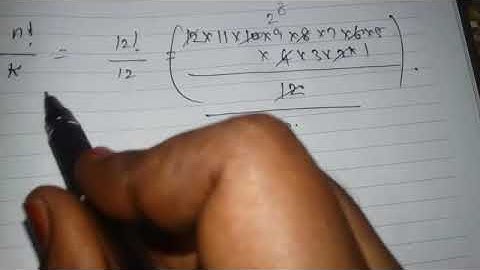 n! / k = 12! / 12 = (12×11×10×9×8×7×6×5
×4×3×2×1 / 12)